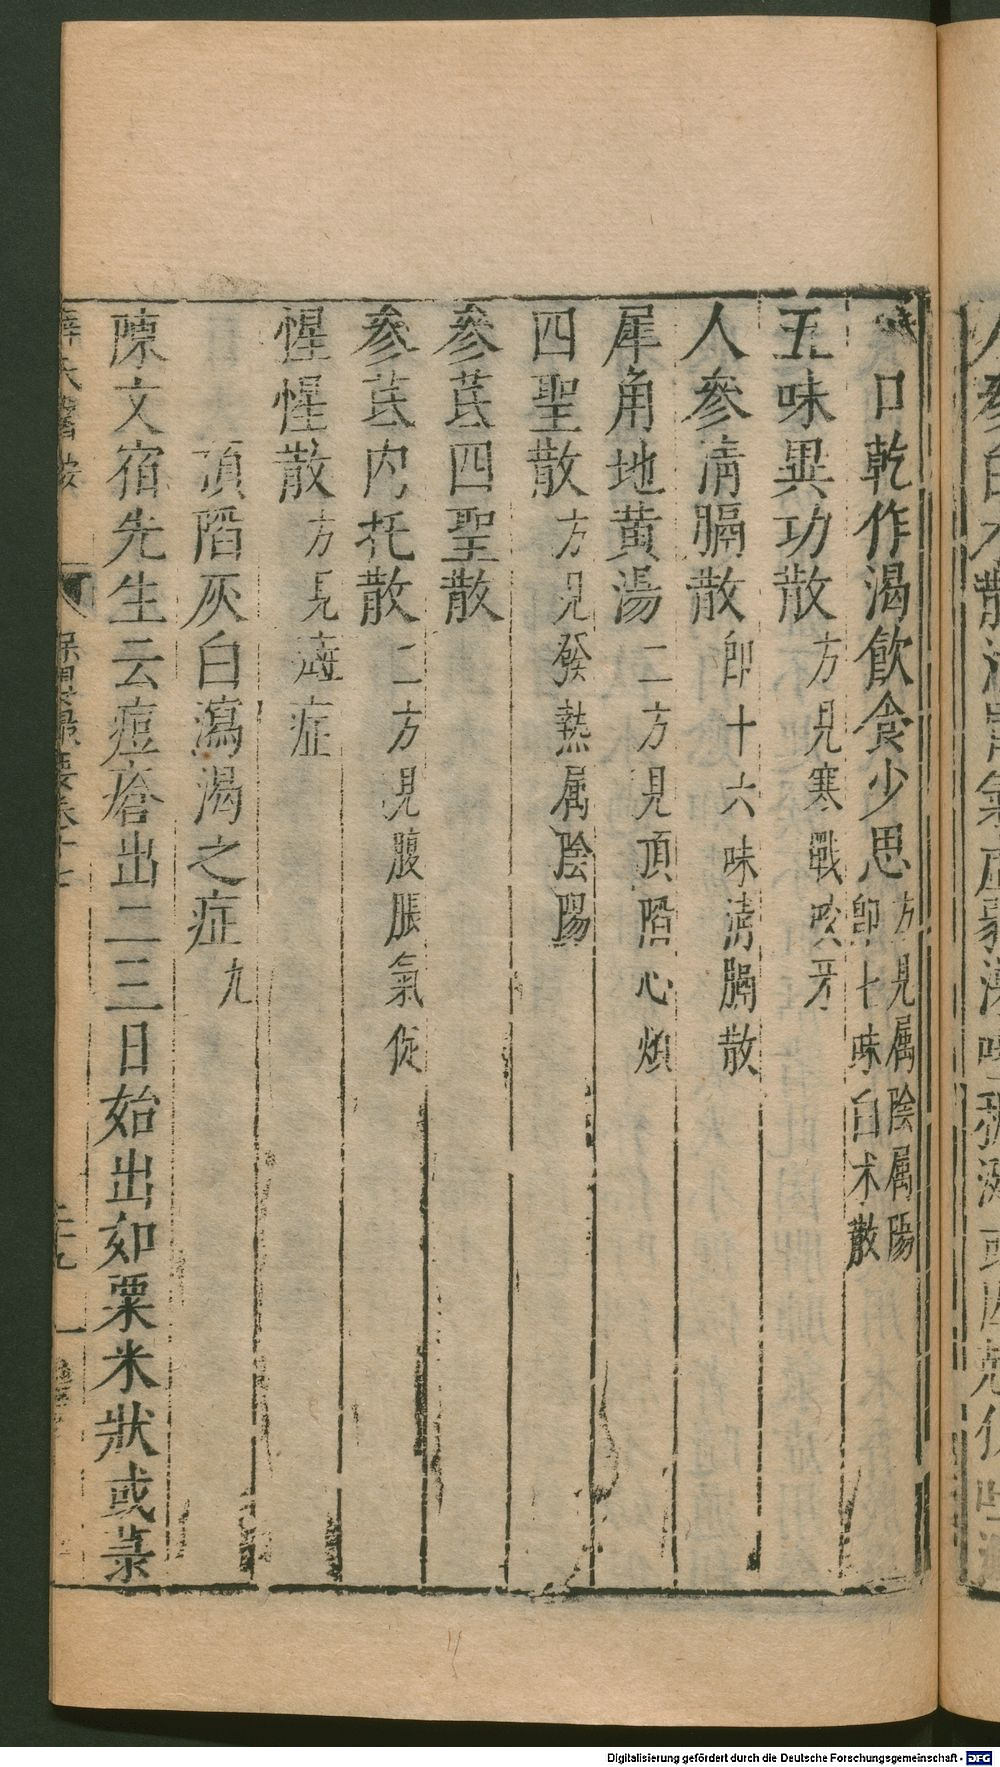 口乾作渴飲食少思方見属陰属陽即七味白术散
五味異功散方見寒戰咬牙
人參清膈散即十六味清膈散
犀角地黄湯二方見頂陷心煩
四聖散方見發熱属陰陽
參芪四聖散
參芪内托散二方見腹脹氣促
惺惺散方見
頂陷灰白瀉渴之症九
陳文宿先生云痘瘡出二三日始出如粟米狀或菉
保嬰撮要卷十七
Digitalisierung gefördert durch die Deutsche Forschungsgemeinschaft - DFG